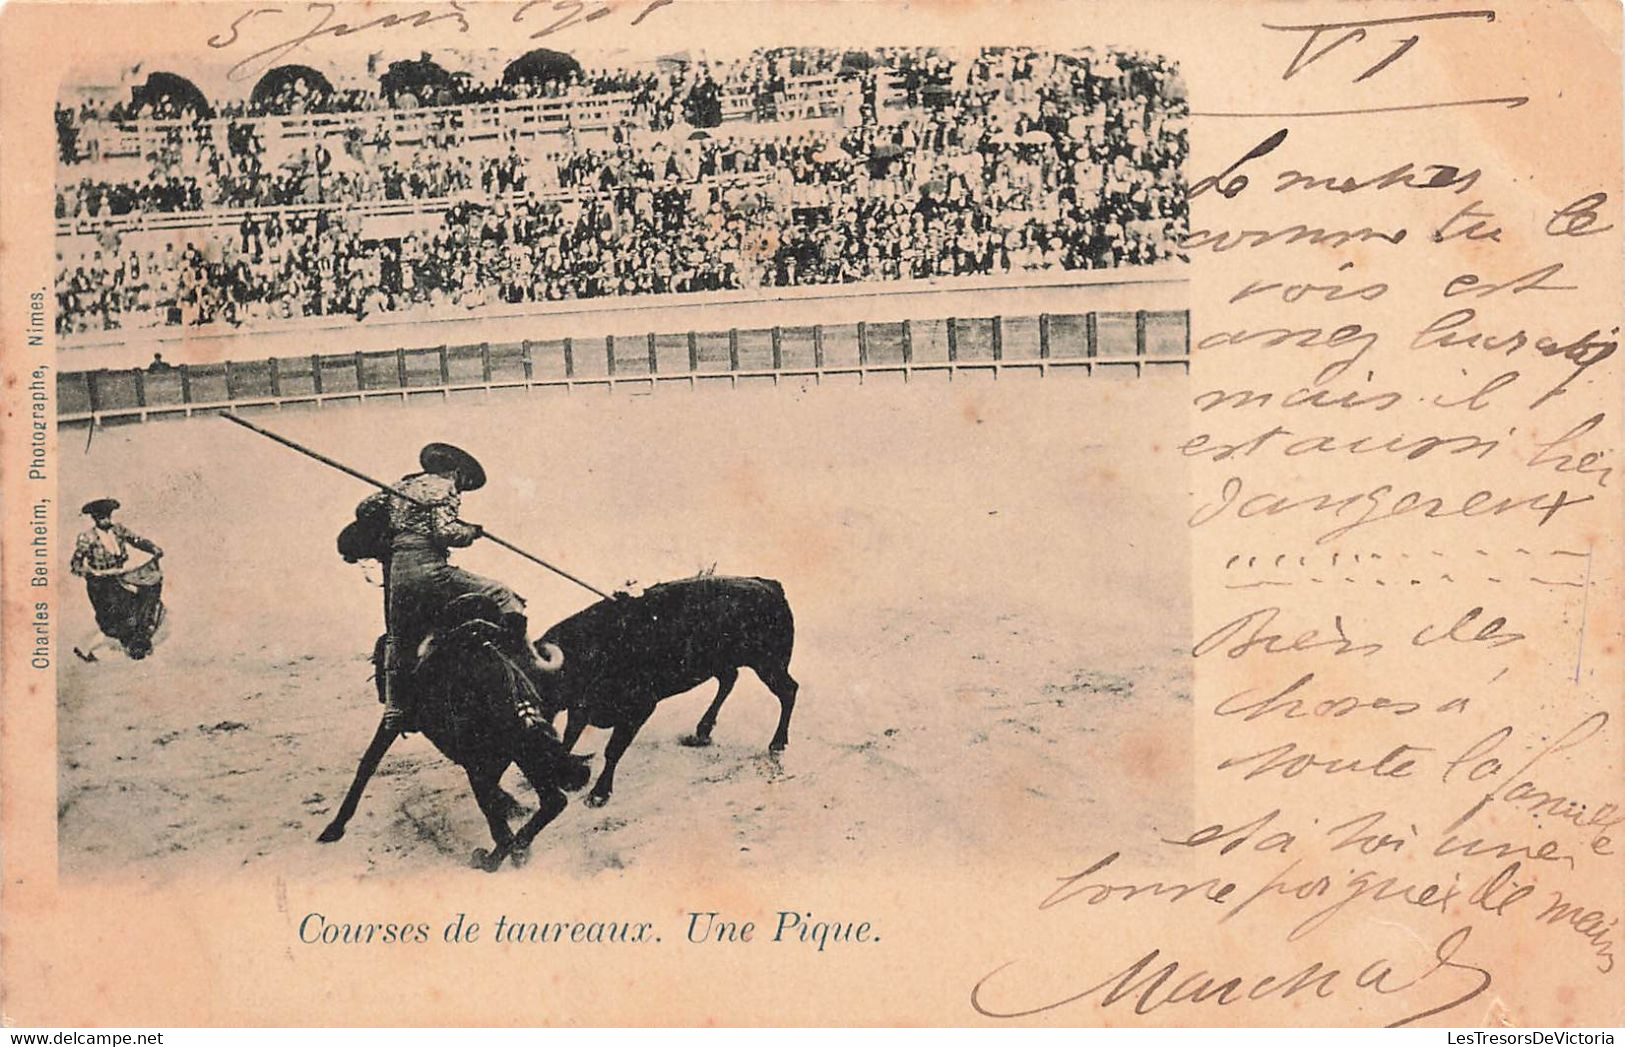 5 Juin 1901
VI
Le métier
comme tu le
vois est
assez
mais il
est aussi bien
dangereux
Bien des
choses à
toute la famille
et à toi une
bonne poignée de main
Marchal
Courses de taureaux. Une Pique.
Charles Bernheim, Photographe, Nîmes.
LesTresorsDeVictoria